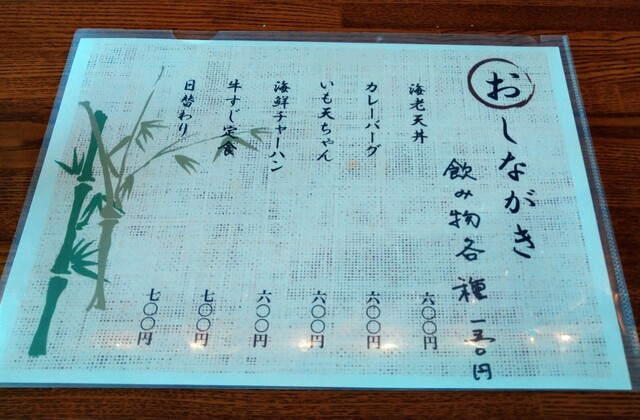 おしながき
飲み物各種 一五〇円
海老天丼 六〇〇円
カレーバーグ 六〇〇円
いも天ちゃん 六〇〇円
海鮮チャーハン 六〇〇円
牛すじ定食 七〇〇円
日替わり 七〇〇円